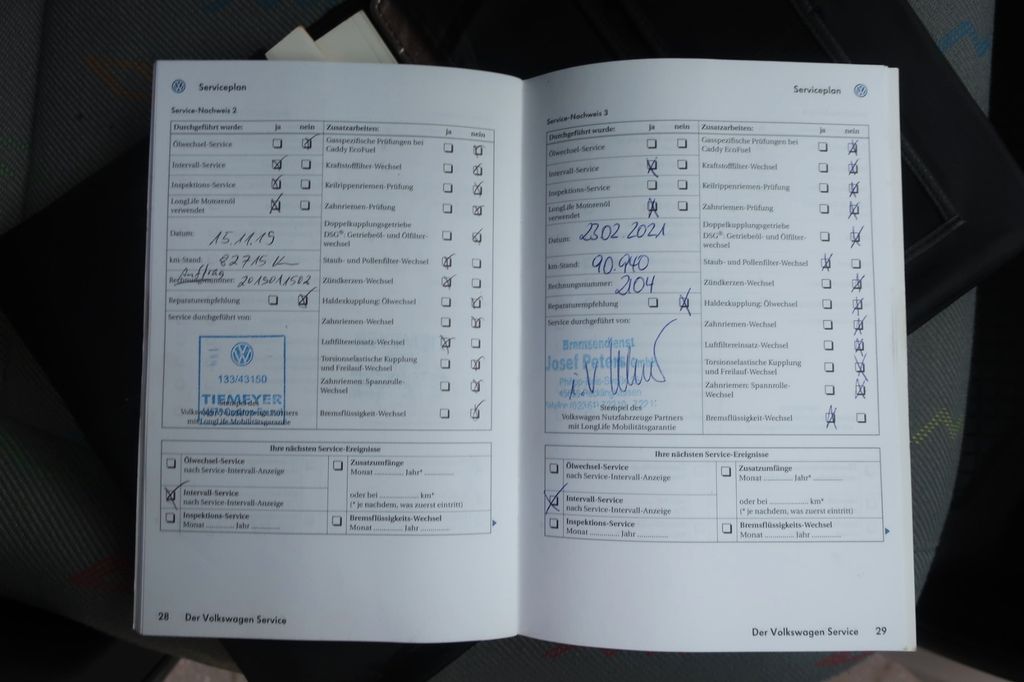 Serviceplan
Service-Nachweis 2
Durchgeführt wurde: ja nein
Ölwechsel-Service
Intervall-Service
Inspektions-Service
LongLife Motorenöl
verwendet
Datum: 15.11.19
km-Stand: 82715 K
Auftrag
Rechnungsnummer: 2019011502
Reparaturempfehlung
Service durchgeführt von:
133/43150
TIEMEYER
Stempel des
Volkswagen Nutzfahrzeuge Partners
mit LongLife Mobilitätsgarantie
Zusatzarbeiten: ja nein
Gasspezifische Prüfungen bei
Caddy EcoFuel
Kraftstofffilter-Wechsel
Keilrippenriemen-Prüfung
Zahnriemen-Prüfung
Doppelkupplungsgetriebe
DSG®: Getriebeöl- und Ölfilter-
wechsel
Staub- und Pollenfilter-Wechsel
Zündkerzen-Wechsel
Haldexkupplung: Ölwechsel
Zahnriemen-Wechsel
Luftfiltereinsatz-Wechsel
Torsionselastische Kupplung
und Freilauf-Wechsel
Zahnriemen: Spannrolle-
Wechsel
Bremsflüssigkeit-Wechsel
Ihre nächsten Service-Ereignisse
Ölwechsel-Service
nach Service-Intervall-Anzeige
Intervall-Service
nach Service-Intervall-Anzeige
Inspektions-Service
Monat ............ Jahr ............
Zusatzumfänge
Monat ............ Jahr* ............
oder bei ............... km*
(* je nachdem, was zuerst eintritt)
Bremsflüssigkeits-Wechsel
Monat ............ Jahr ............
28 Der Volkswagen Service
Serviceplan
Service-Nachweis 3
Durchgeführt wurde: ja nein
Ölwechsel-Service
Intervall-Service
Inspektions-Service
LongLife Motorenöl
verwendet
Datum: 23.02.2021
km-Stand: 90.940
Rechnungsnummer: 2104
Reparaturempfehlung
Service durchgeführt von:
Bremsendienst
Josef Peters
Stempel des
Volkswagen Nutzfahrzeuge Partners
mit LongLife Mobilitätsgarantie
Zusatzarbeiten: ja nein
Gasspezifische Prüfungen bei
Caddy EcoFuel
Kraftstofffilter-Wechsel
Keilrippenriemen-Prüfung
Zahnriemen-Prüfung
Doppelkupplungsgetriebe
DSG®: Getriebeöl- und Ölfilter-
wechsel
Staub- und Pollenfilter-Wechsel
Zündkerzen-Wechsel
Haldexkupplung: Ölwechsel
Zahnriemen-Wechsel
Luftfiltereinsatz-Wechsel
Torsionselastische Kupplung
und Freilauf-Wechsel
Zahnriemen: Spannrolle-
Wechsel
Bremsflüssigkeit-Wechsel
Ihre nächsten Service-Ereignisse
Ölwechsel-Service
nach Service-Intervall-Anzeige
Intervall-Service
nach Service-Intervall-Anzeige
Inspektions-Service
Monat ............ Jahr ............
Zusatzumfänge
Monat ............ Jahr* ............
oder bei ............... km*
(* je nachdem, was zuerst eintritt)
Bremsflüssigkeits-Wechsel
Monat ............ Jahr ............
Der Volkswagen Service 29